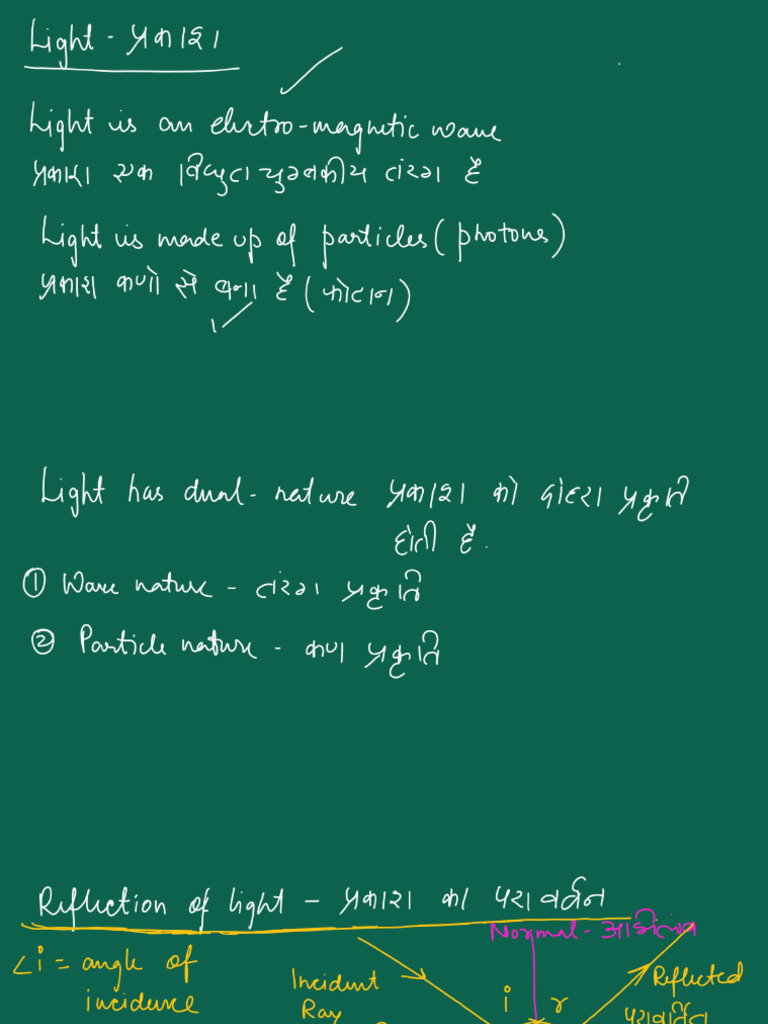 Light - प्रकाश
Light is an electro-magnetic wave
प्रकाश एक विद्युत चुम्बकीय तरंग है
Light is made up of particles (photons)
प्रकाश कणो से बना है (फोटान)
Light has dual-nature प्रकाश को दोहरा प्रकृति
होती है.
① Wave nature - तंरग प्रकृति
② Particle nature - कण प्रकृति
Reflection of light - प्रकाश का परावर्तन
Normal - अभिलंब
∠i = angle of
incidence
Incident
Ray
i r
Reflected
परावर्तित